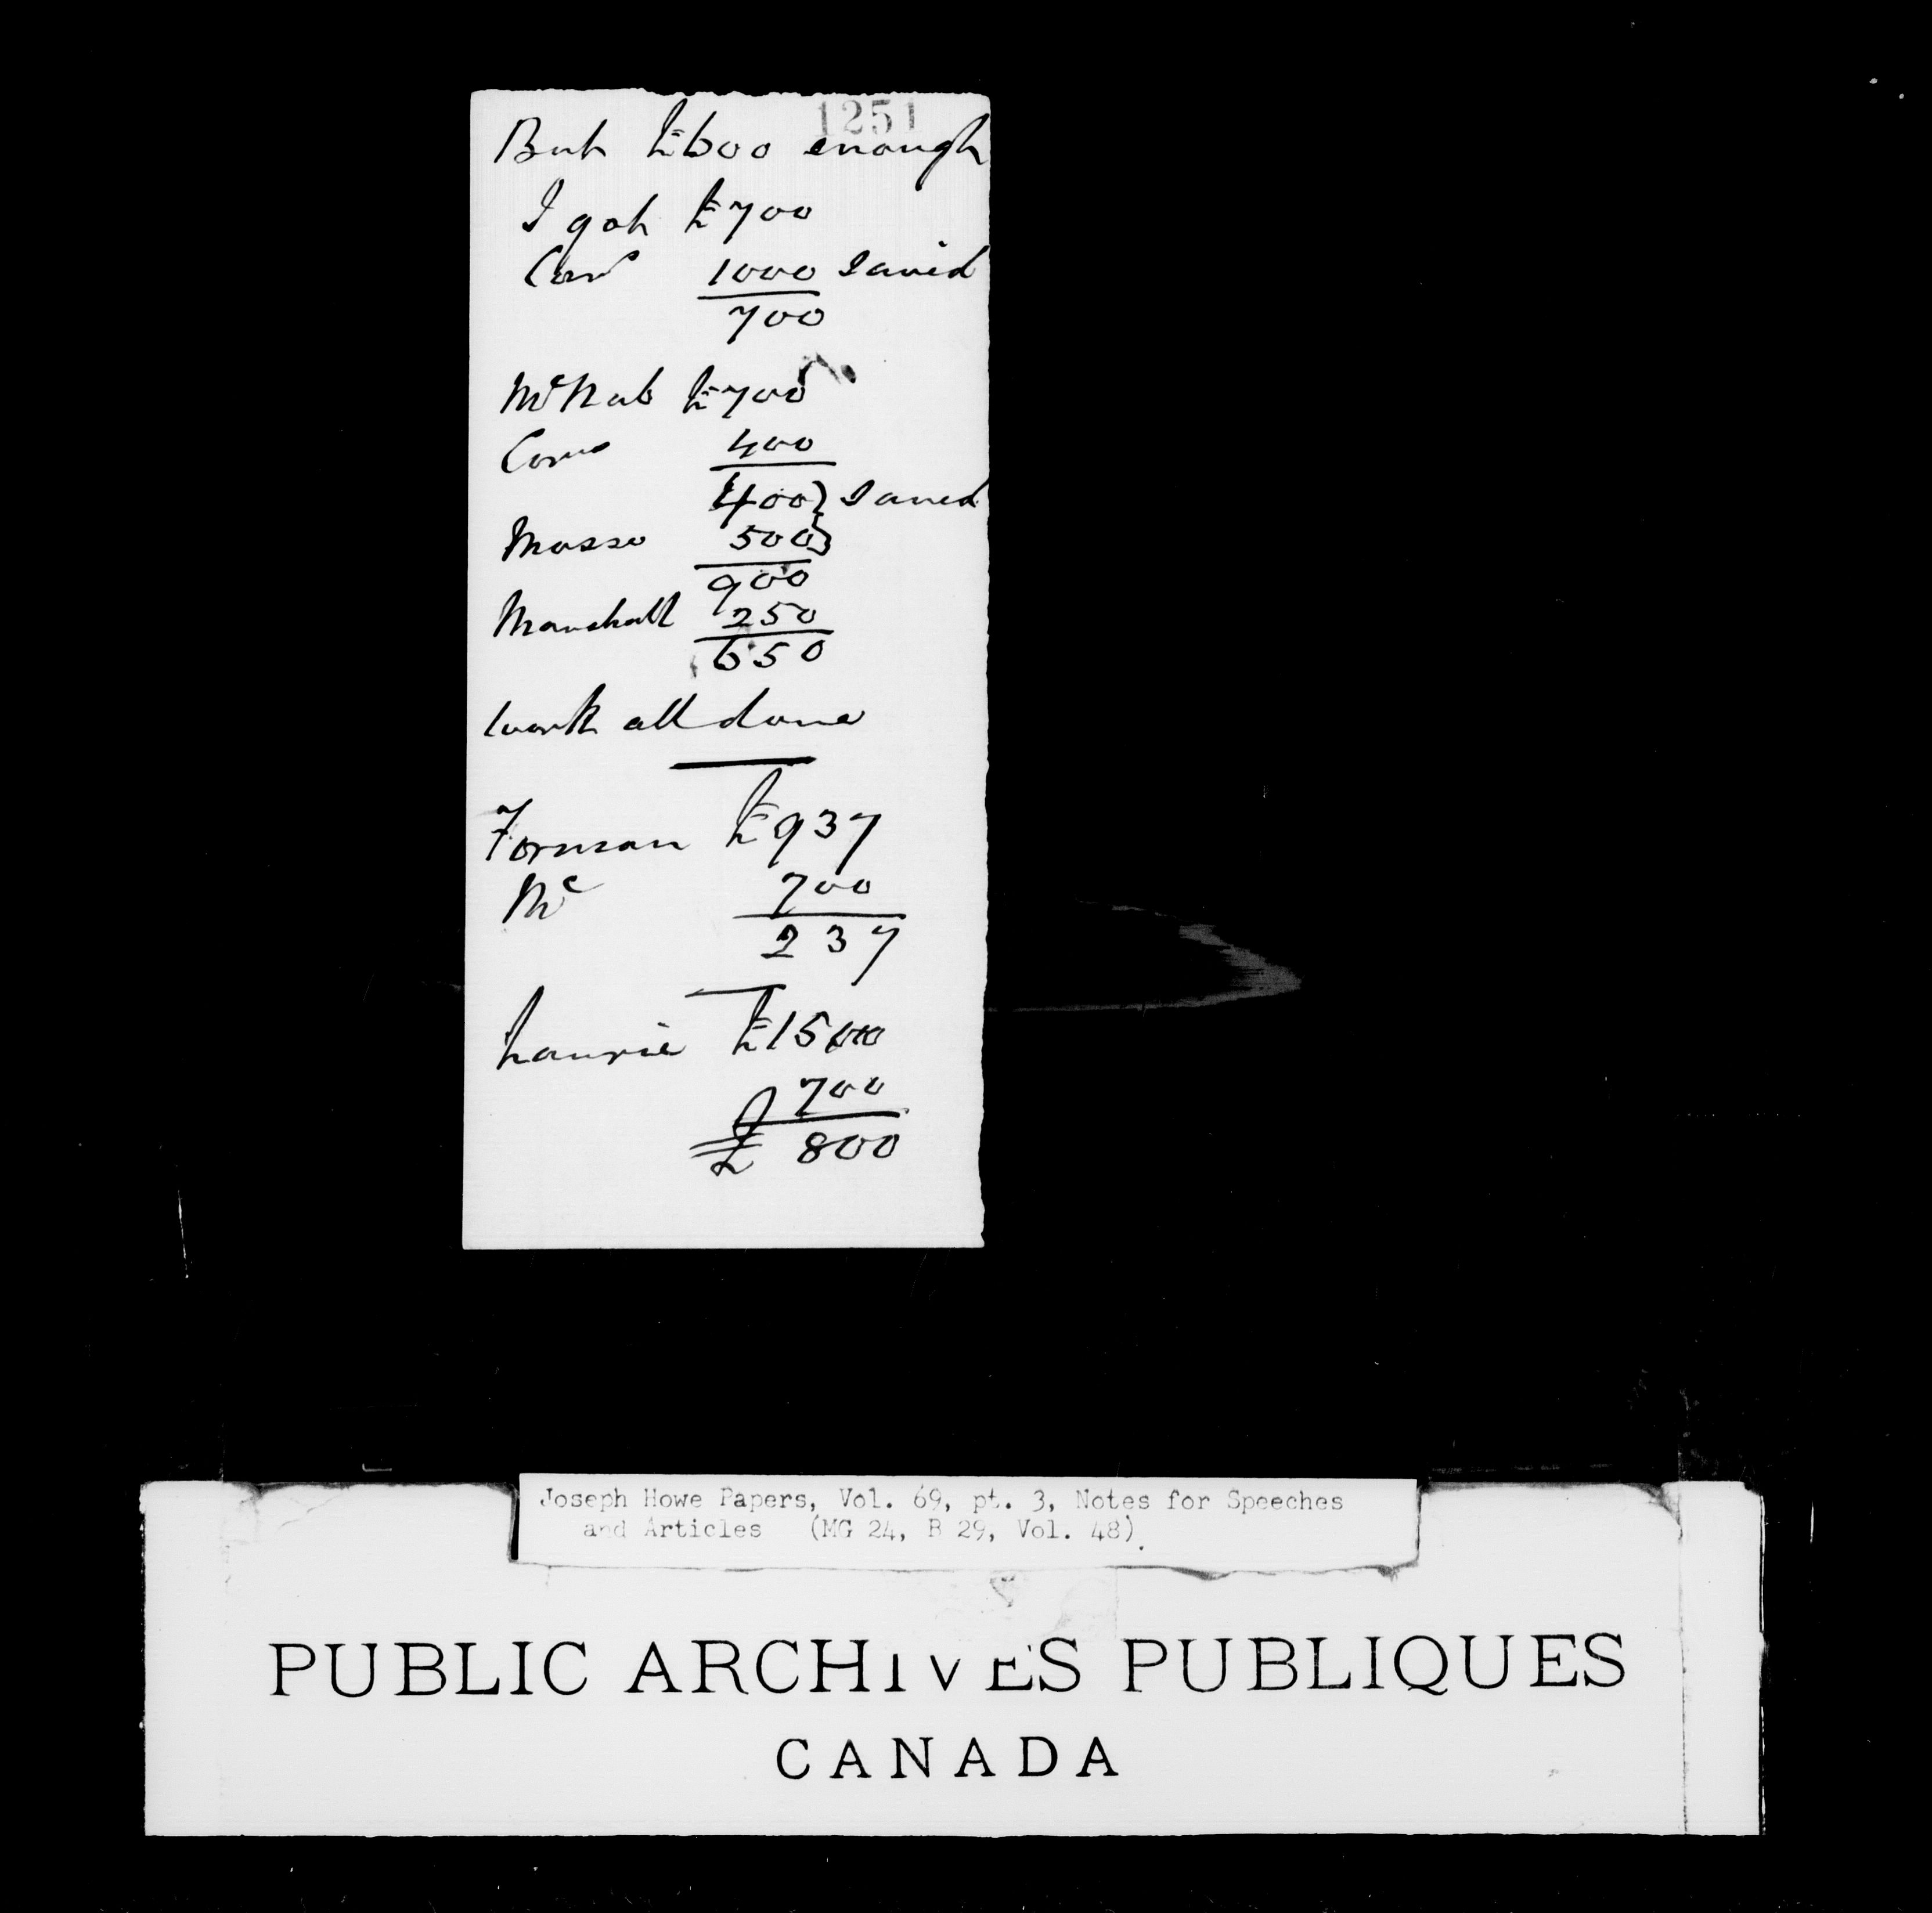 1251
But £600 enough
I got £700
Com 1000 saved
700
McNab £700
Coms 400
400 } saved
Mosse 500 }
900
Marshall 250
650
work all done
Forman £937
Mc 700
237
Laurie £1500
700
£ 800
Joseph Howe Papers, Vol. 69, pt. 3, Notes for Speeches
and Articles (MG 24, B 29, Vol. 48).
PUBLIC ARCHIVES PUBLIQUES
CANADA